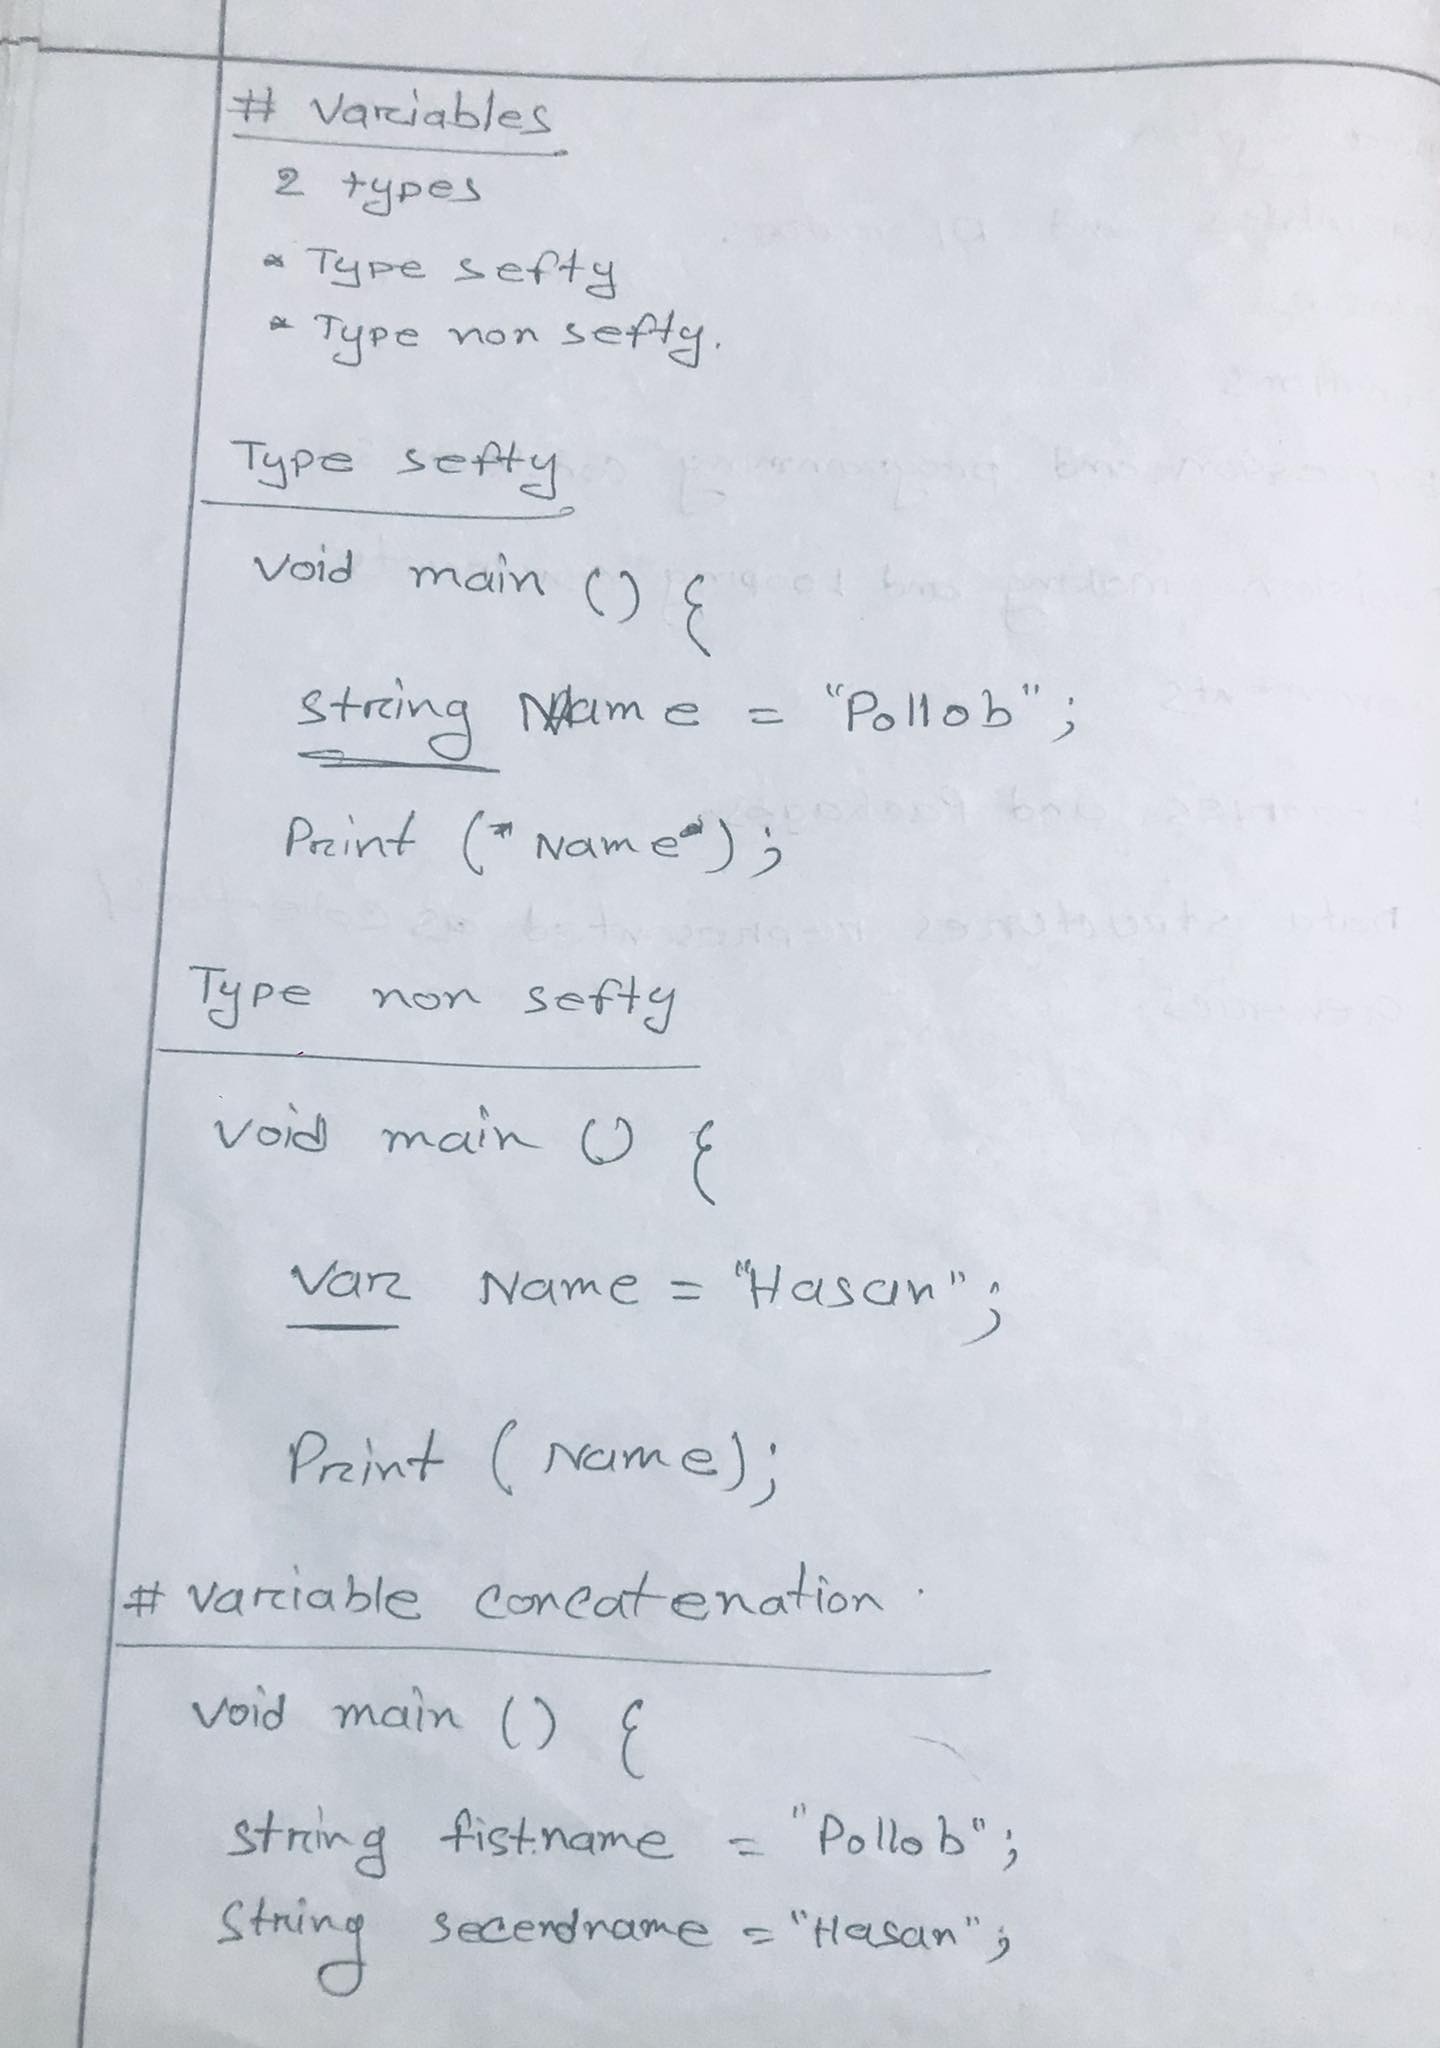 # Variables
2 types
* Type sefty
* Type non sefty.
Type sefty
void main () {
string Name = "Pollob";
Print ("Name");
Type non sefty
void main () {
var Name = "Hasan";
Print (Name);
# variable concatenation.
void main () {
string fistname = "Pollob";
String secendname = "Hasan";